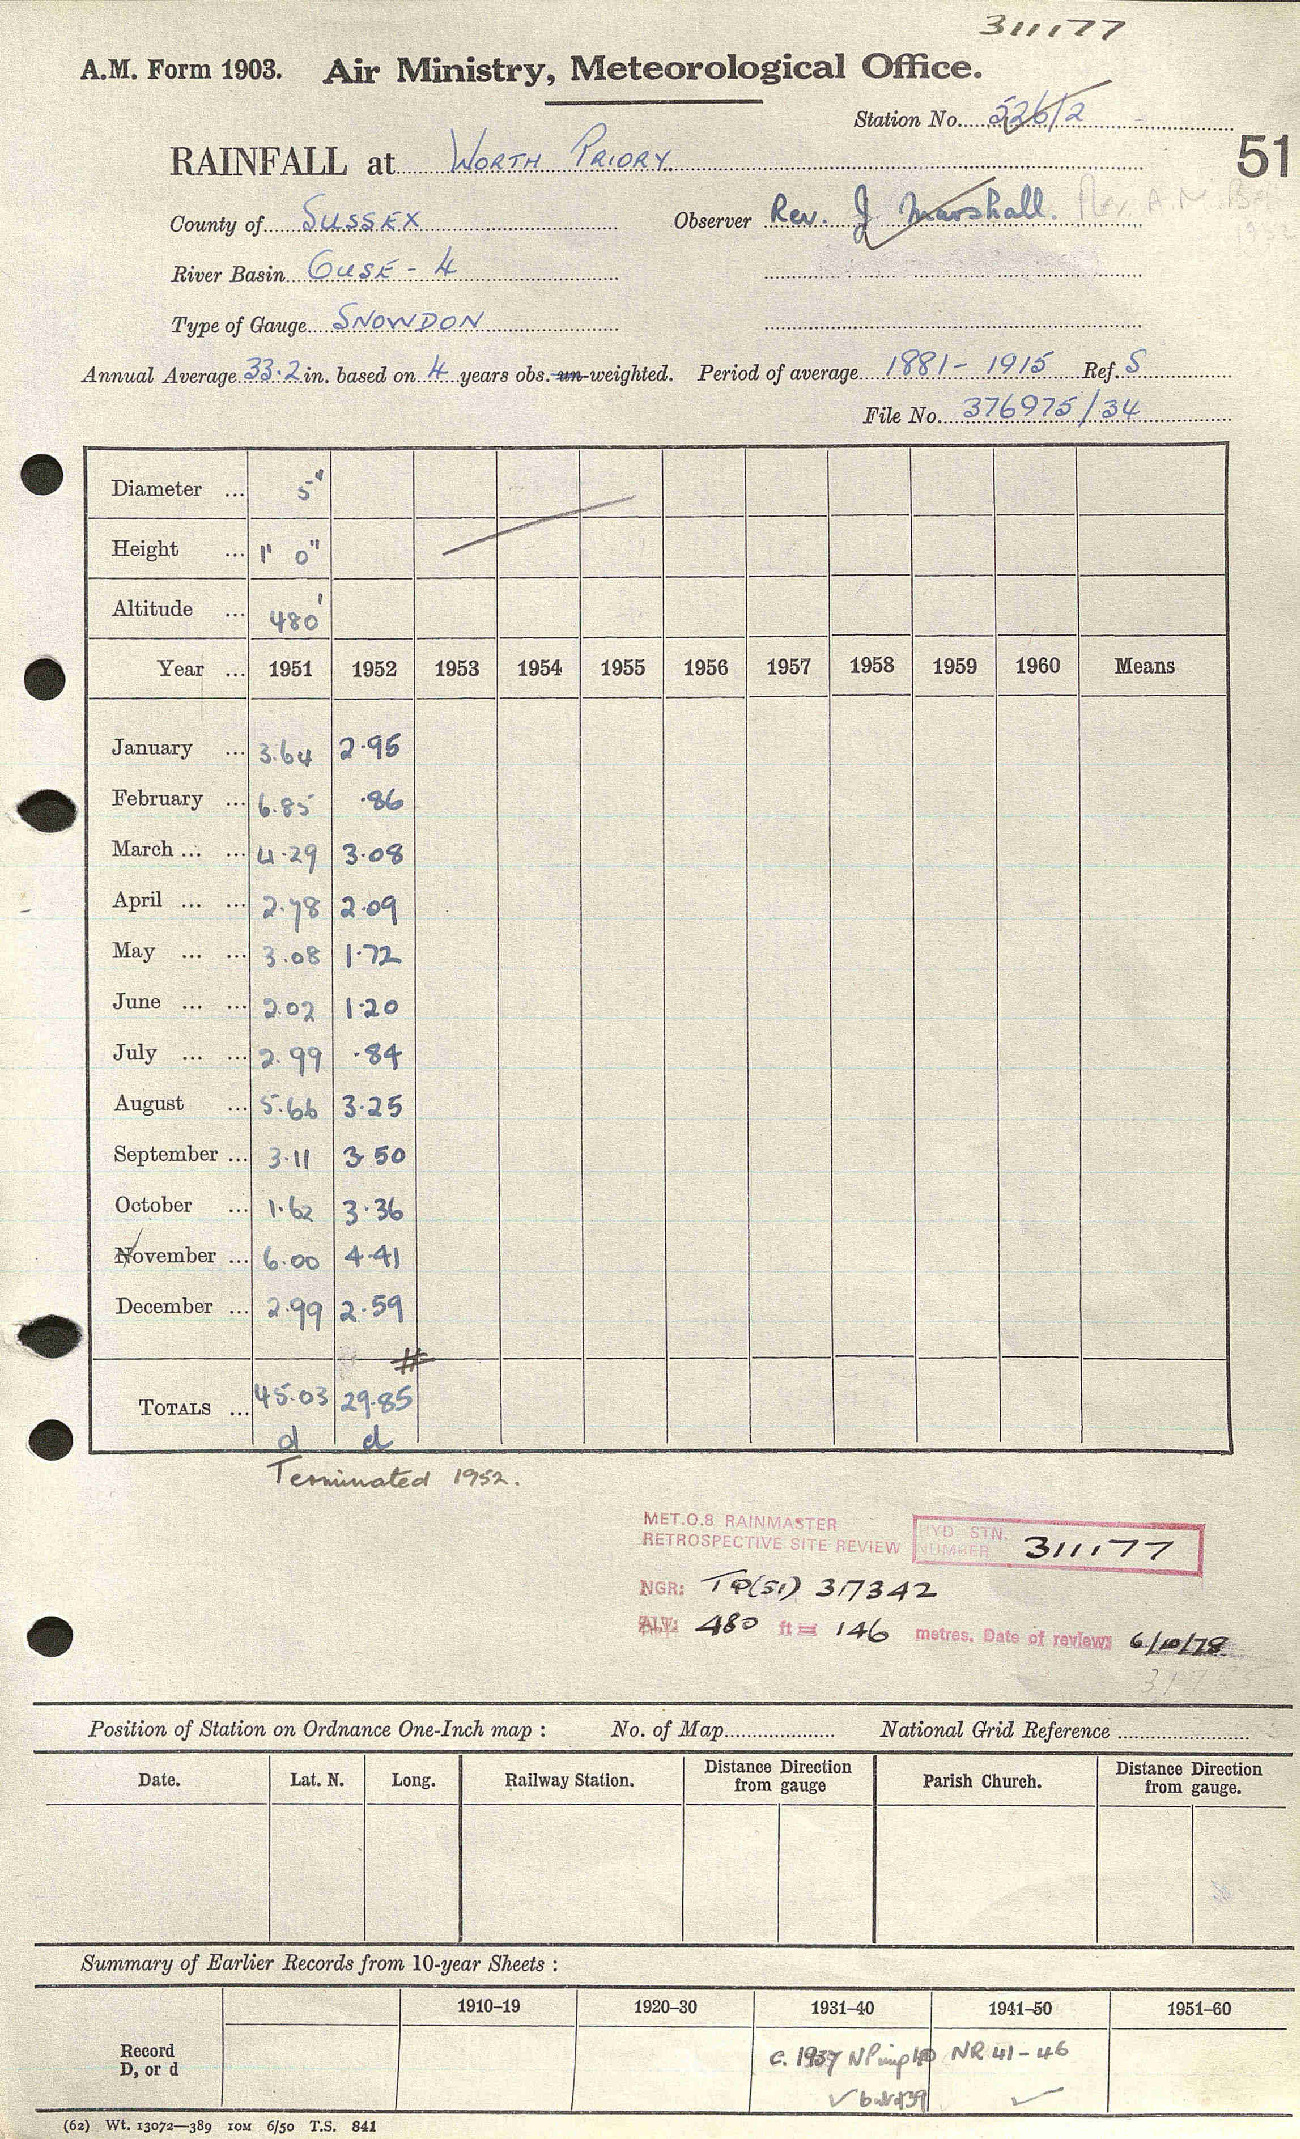 311177
A.M. Form 1903. Air Ministry, Meteorological Office.
Station No. 526/2
51
RAINFALL at WORTH PRIORY
County of SUSSEX Observer Rev. J Marshall. Rev. A.M.
River Basin OUSE - 4
Type of Gauge SNOWDON
Annual Average 33.2 in. based on 4 years obs. un-weighted. Period of average 1881 - 1915 Ref. S
File No. 376975/34
Diameter ... 5"
Height ... 1' 0"
Altitude ... 480'
Year ... 1951 1952 1953 1954 1955 1956 1957 1958 1959 1960 Means
January ... 3.64 2.95
February ... 6.85 .86
March ... ... 4.29 3.08
April ... ... 2.78 2.09
May ... ... 3.08 1.72
June ... ... 2.02 1.20
July ... ... 2.99 .84
August ... 5.66 3.25
September ... 3.11 3.50
October ... 1.62 3.36
November ... 6.00 4.41
December ... 2.99 2.59
#
TOTALS ... 45.03 29.85
d d
Terminated 1952.
MET.O.8 RAINMASTER
RETROSPECTIVE SITE REVIEW
HYD STN. NUMBER 311177
NGR: TQ(51) 317342
ALT: 480 ft = 146 metres. Date of review: 6/10/78
Position of Station on Ordnance One-Inch map : No. of Map National Grid Reference
Date. Lat. N. Long. Railway Station. Distance Direction from gauge Parish Church. Distance Direction from gauge.
Summary of Earlier Records from 10-year Sheets :
1910–19 1920–30 1931–40 1941–50 1951–60
Record
D, or d
c. 1937 NR 41-46
(62) Wt. 13072—389 10M 6/50 T.S. 841